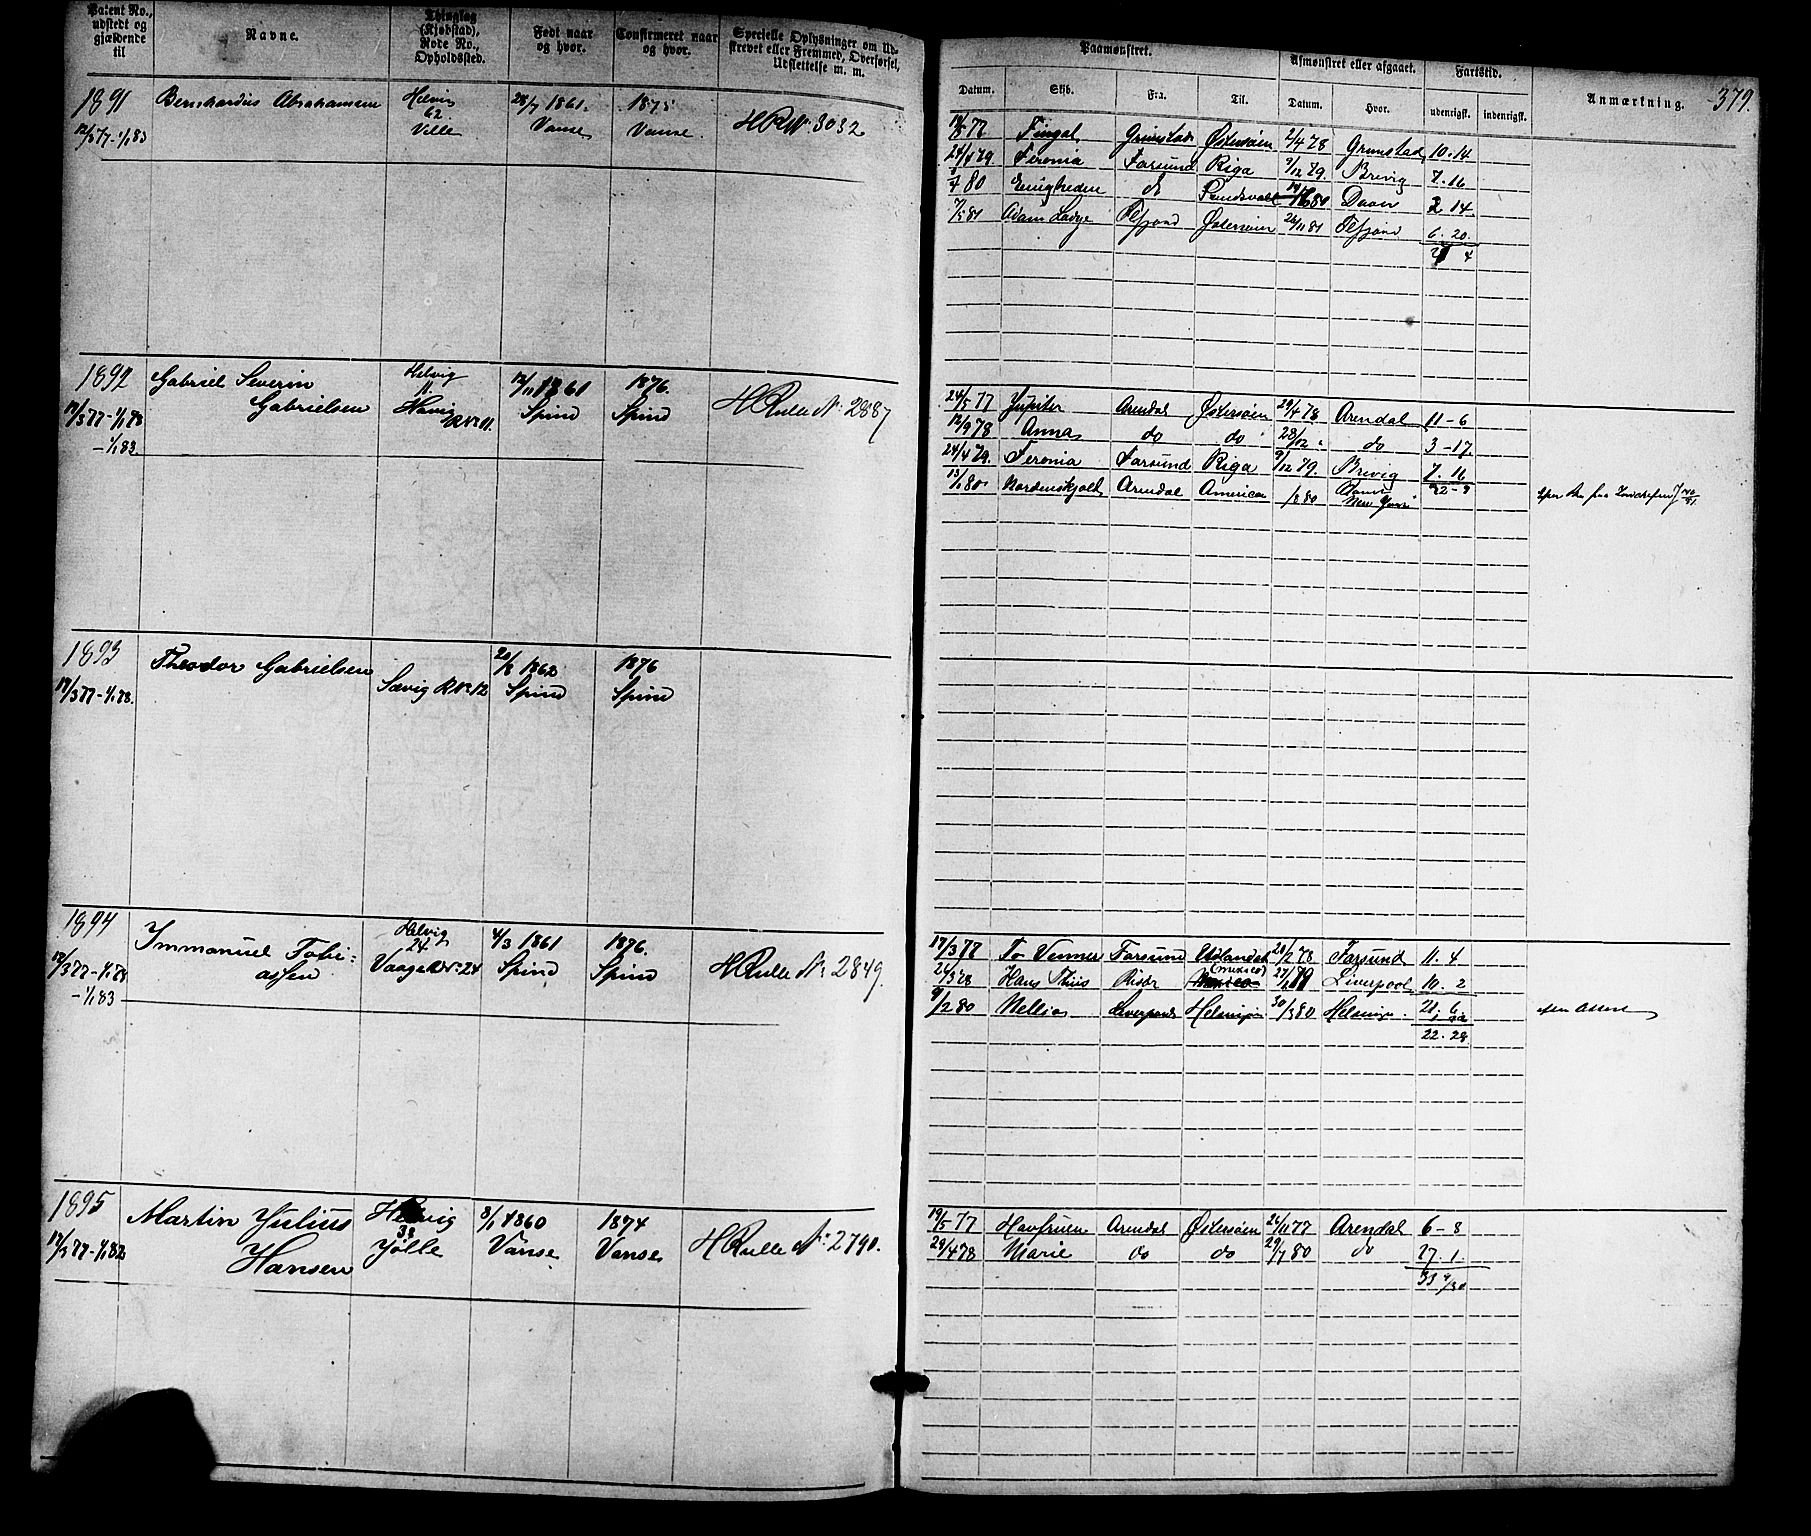 Patent No., udstedt og gjældende til
Navne.
Thinglag (Kjøbstad), Rode No., Opholdssted.
Født naar og hvor.
Confirmeret naar og hvor.
Specielle Oplysninger om Udskrevet eller Fremmed, Overførsel, Udslettelse m. m.
Paamønstret.
Afmønstret eller afgaaet.
Fartstid.
Anmærkning.
379.
Datum.
Skib.
Fra.
Til.
Datum.
Hvor.
udenrigsk.
indenrigsk.
1891
Bernhardus Abrahamsen
Helvig
62
Ville
28/7 1861.
Vanse
1875
Vanse
HRNr. 3032
Fingal Grimstad Østersøen 2/4 78 Grimstad 10.14
24/4 79 Feronia Farsund Riga 9/12 79 Brevig 7.16
80 Enigheden do Sundsvall 2 14
7/5 81 Østersøen 26/11 81 6. 20.
1892
17/3 77-1/1 78
-1/1 83
Gabriel Severin
Gabrielsen
Helvig
11.
12/11 1861
Spind
1876.
Spind
HRulle Nr. 2887
24/5 77 Jupiter Arendal Østersøen 29/4 78 Arendal 11-6
12/9 78 Anna do do 28/12 " do 3-17
24/4 79. Feronia Farsund Riga 9/12 79. Brevig 7.16
13/1 80 Nordenskjold Arendal America 80 New York 22-9
1893
17/3 77-1/1 78.
Theodor Gabrielsen
Sævig RNr 12
20/8 1862
Spind
1876
Spind
1894
17/3 77-1/1 78
-1/1 83
Immanuel Tobi=
assen
Helvig
24
Vaage RNr. 24
4/3 1861
Spind
1876.
Spind
HRulle Nr 2849.
17/3 77 To Venner Farsund Udlandet 78 Farsund 11.4
Hans Thiis Risør (Mexico) Liverpool 10.2
9/2 80 Nellie Liverpool 30/3 80 21. 6
22.28
1895
17/3 77-1/1 82
Martin Julius
Hansen
Helvig
38
Jølle
8/1 1860
Vanse
1874
Vanse
HRulle Nr. 2790.
19/5 77 Havfruen Arendal Østersøen 26/11 77 Arendal 6-8
29/4 78 Marie do do 29/7 80 do 27.1
33 9/30